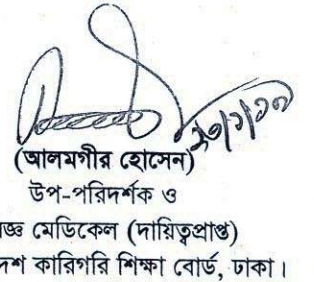 (আলমগীর হোসেন)
উপ-পরিদর্শক ও
জ্ঞ মেডিকেল (দায়িত্বপ্রাপ্ত)
দেশ কারিগরি শিক্ষা বোর্ড, ঢাকা।